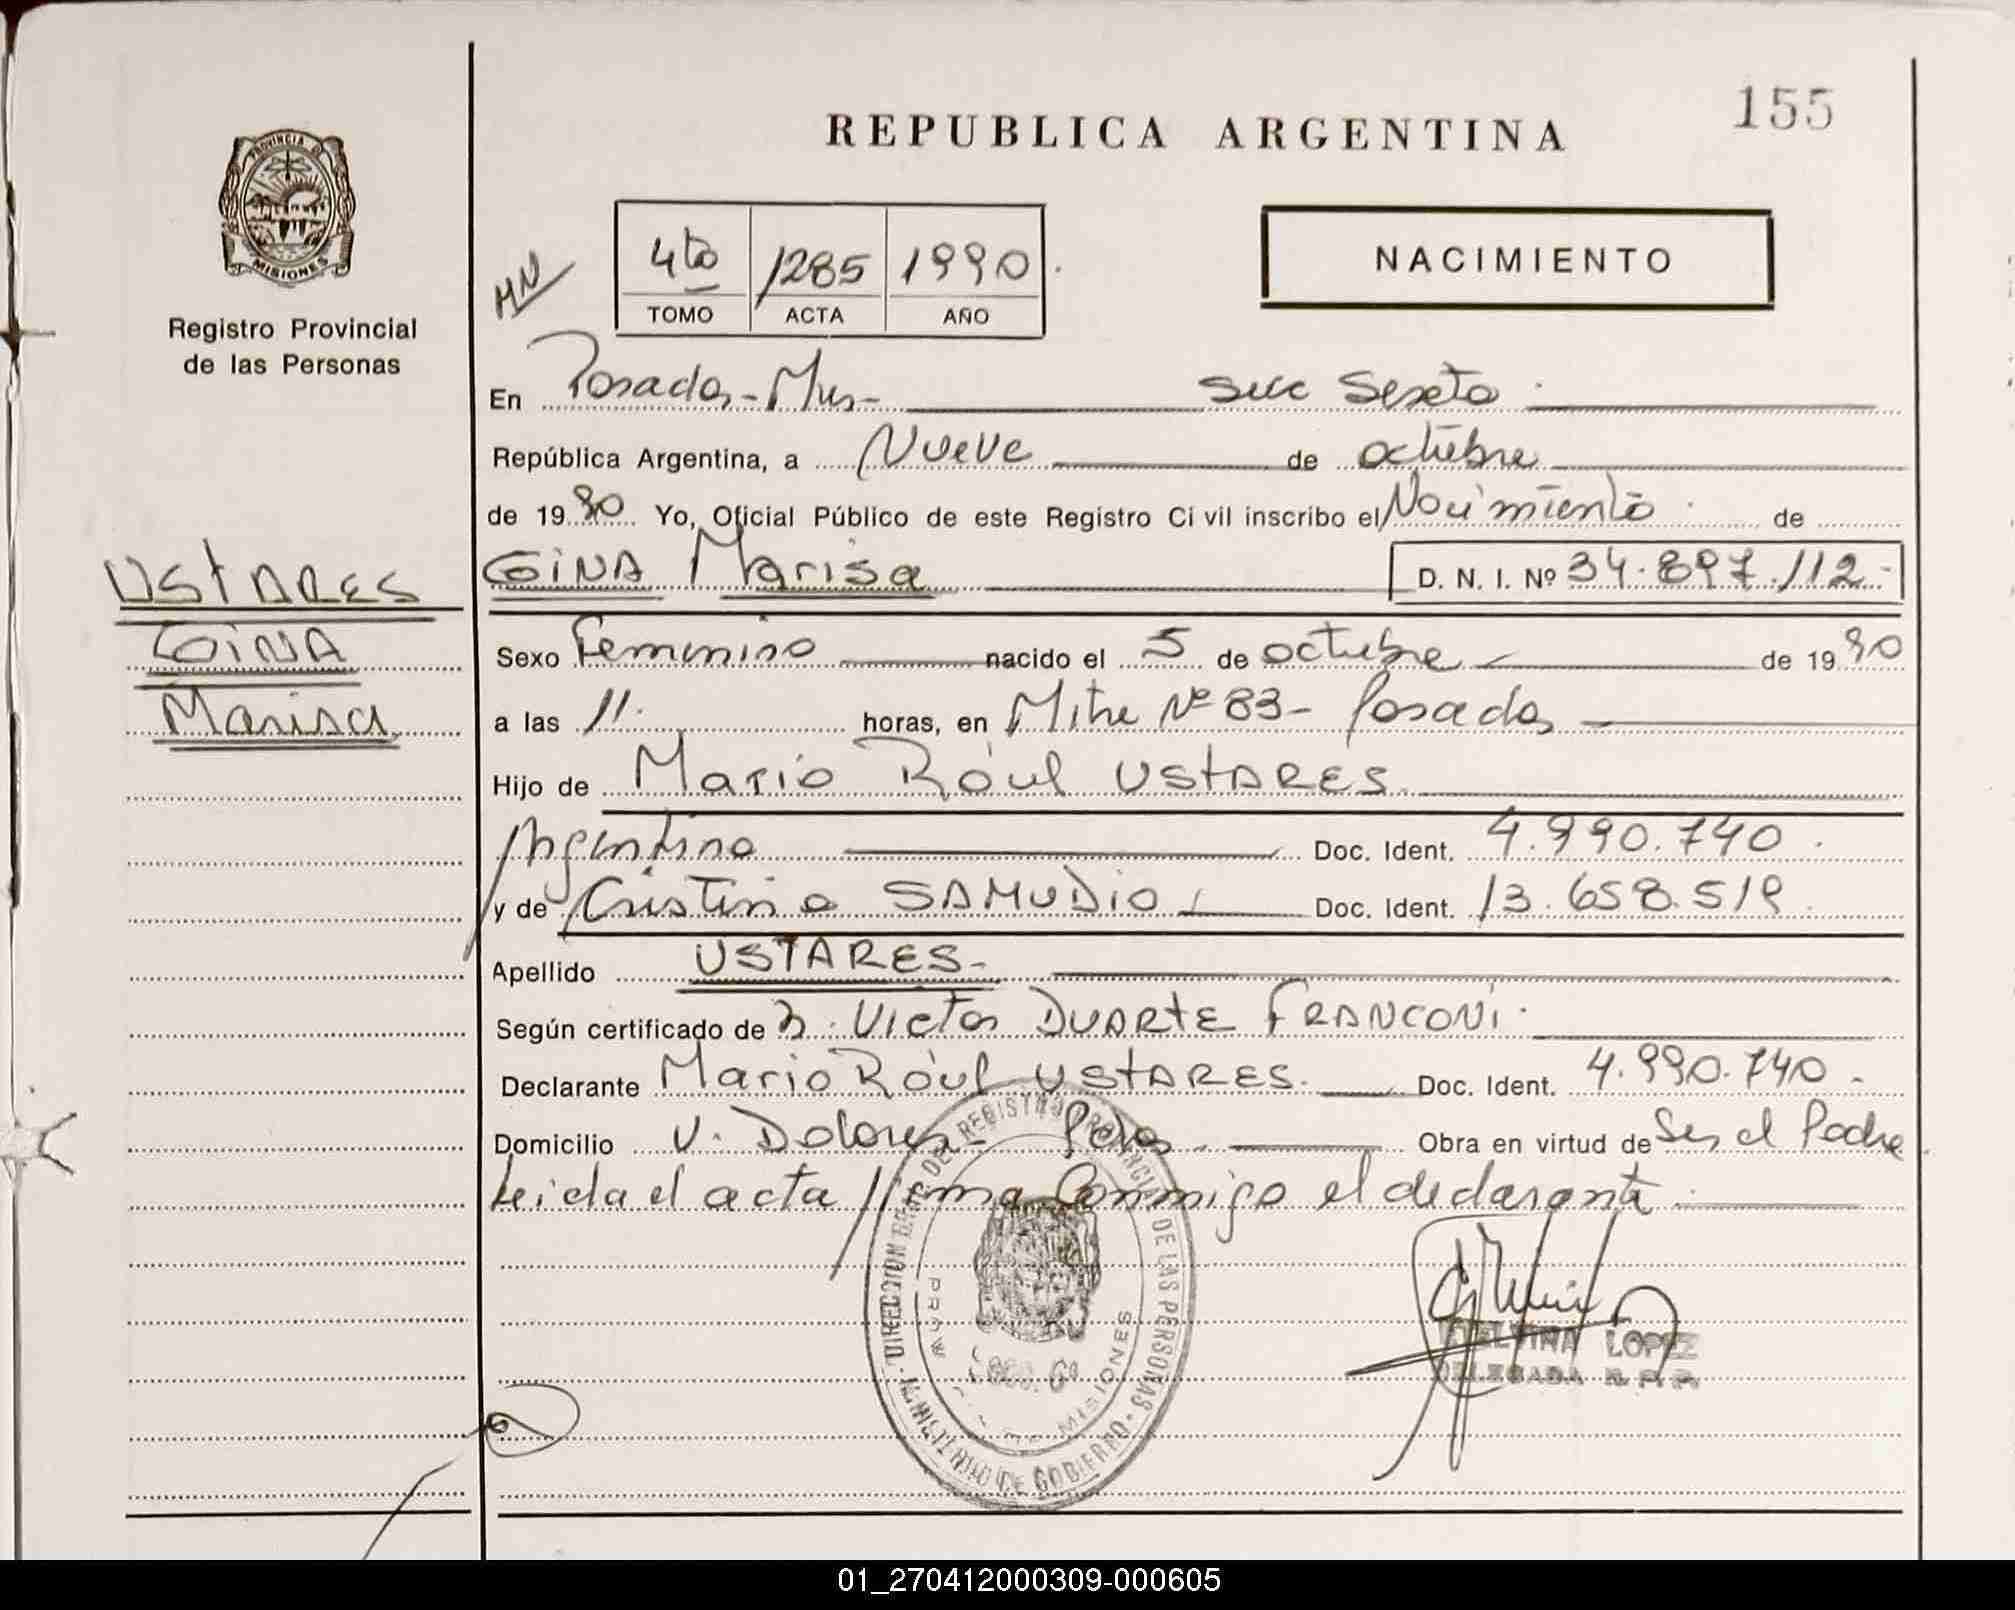 155
REPUBLICA ARGENTINA
PROVINCIA D
MISIONES
Registro Provincial
de las Personas
HN
4to 1285 1990
TOMO ACTA AÑO
NACIMIENTO
En Posadas - Mns - Secc Sexta
República Argentina, a Nueve de octubre
de 1990 Yo, Oficial Público de este Registro Civil inscribo el Nacimiento de
GINA Marisa D. N. I. Nº 34.897.112
USTARES
GINA
Marisa
Sexo Femenino nacido el 5 de octubre de 1990
a las 11 horas, en Mitre Nº 83 - Posadas
Hijo de Mario Raúl USTARES
Argentino Doc. Ident. 4.990.740
y de Cristina SAMUDIO Doc. Ident. 13.658.519
Apellido USTARES
Según certificado de Victor DUARTE FRANCONI
Declarante Mario Raúl USTARES Doc. Ident. 4.990.740
Domicilio V. Dolores - Pdas Obra en virtud de Ser el Padre
Leida el acta firma conmigo el declarante
DIRECCION DEL REGISTRO PROVINCIAL DE LAS PERSONAS - MINISTERIO DE GOBIERNO
MISIONES
LOPEZ
DELEGADA R. P. P.
01_270412000309-000605